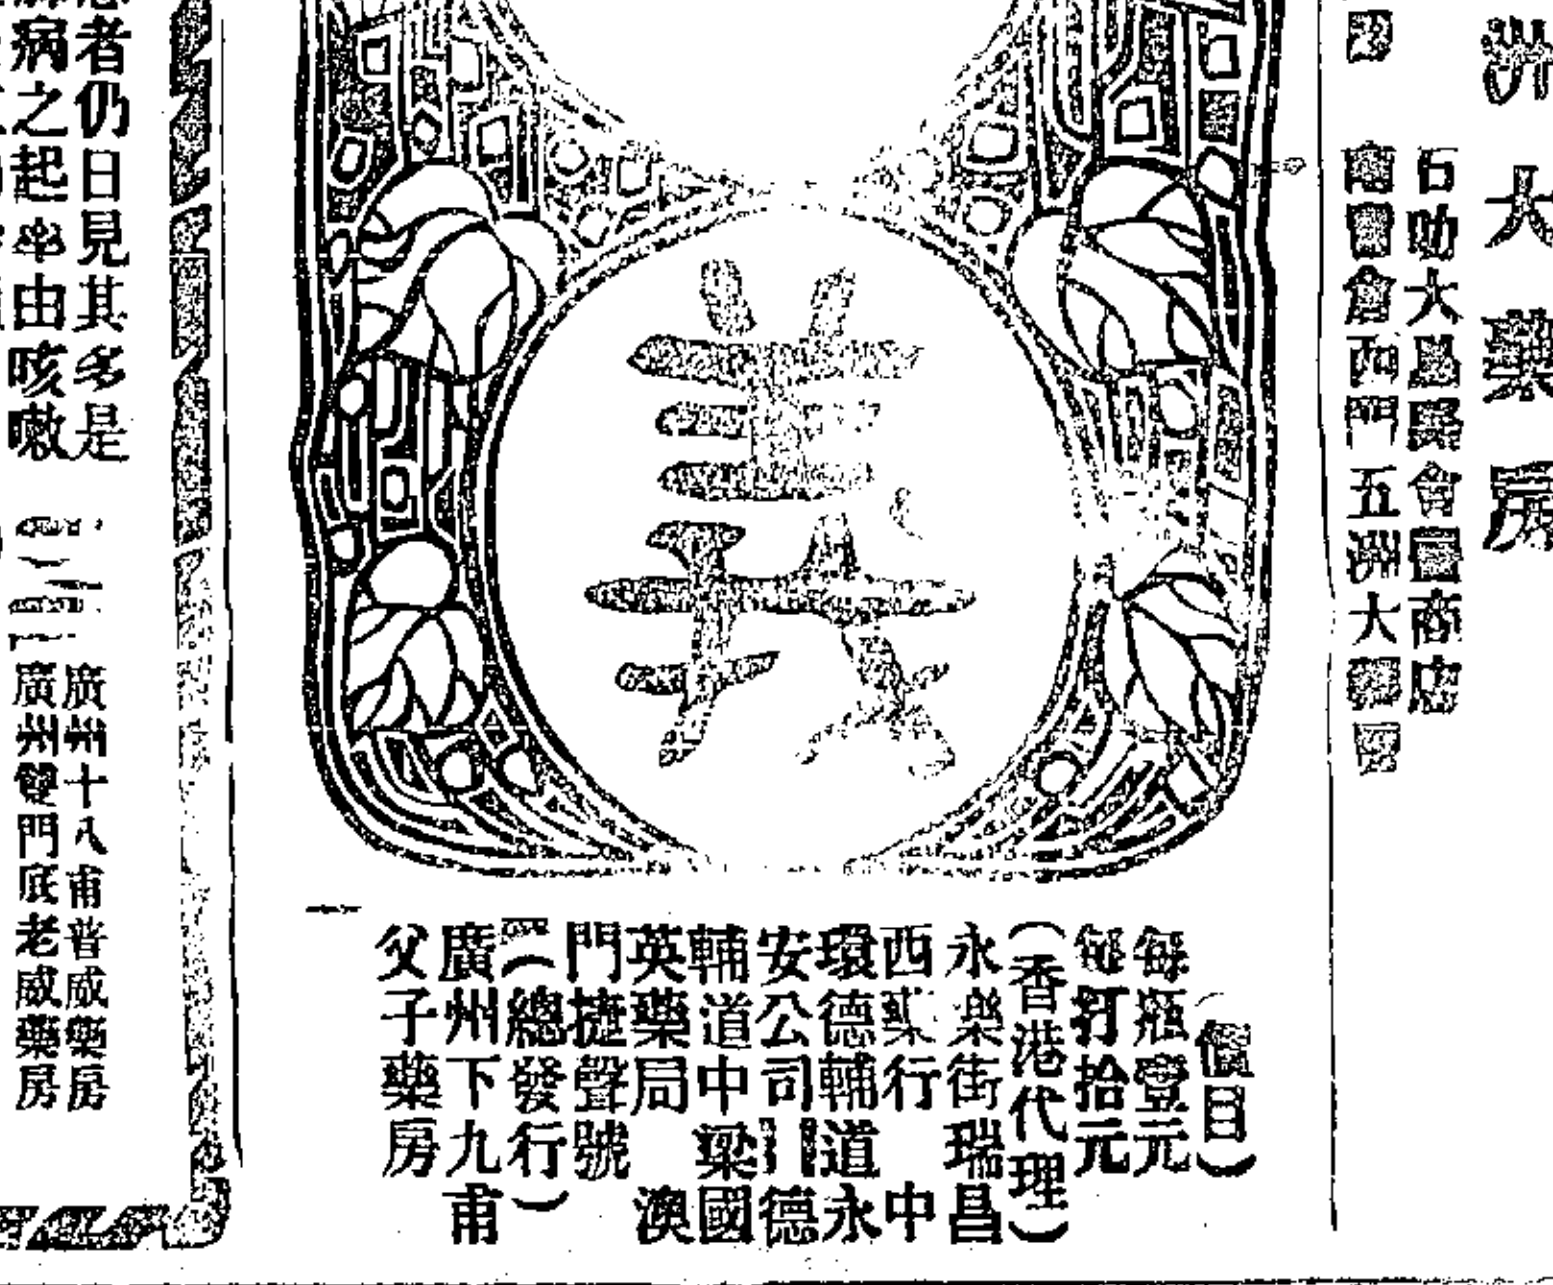 洲大藥房
石叻大馬路會圖商店
西門五洲大藥房
義
（價目）
每瓶壹元
每打拾元
（香港代理）
永樂街瑞昌
西藥行　中
環德輔道永
安公司　德
輔道中梁國
英藥局　澳
門捷聲號
（總發行）
廣州下九甫
父子藥房
者仍日見其多是
病之起率由咳嗽
廣州十八甫普威藥房
廣州雙門底老威藥房